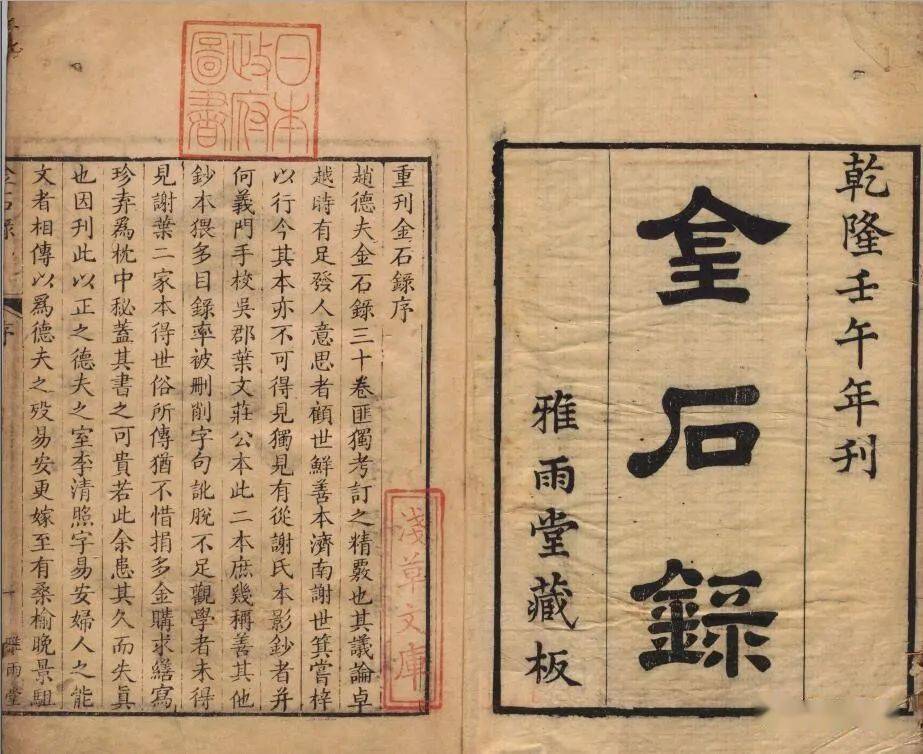 乾隆壬午年刊
金石錄
雅雨堂藏板
日本政府圖書
重刊金石錄序
趙德夫金石錄三十卷匪獨考訂之精覈也其議論卓
越時有足發人意思者顧世鮮善本濟南謝世箕嘗梓
以行今其本亦不可得見獨見有從謝氏本影鈔者并
何義門手校吳郡葉文莊公本此二本庶幾稱善其他
鈔本猥多目錄率被刪削字句訛脫不足觀學者未得
見謝葉二家本得世俗所傳猶不惜捐多金購求繕寫
珍弆爲枕中秘蓋其書之可貴若此余患其久而失眞
也因刊此以正之德夫之室李清照字易安婦人之能
文者相傳以爲德夫之歿易安更嫁至有桑榆晚景駔
淺草文庫
金石錄
序
一
雅雨堂